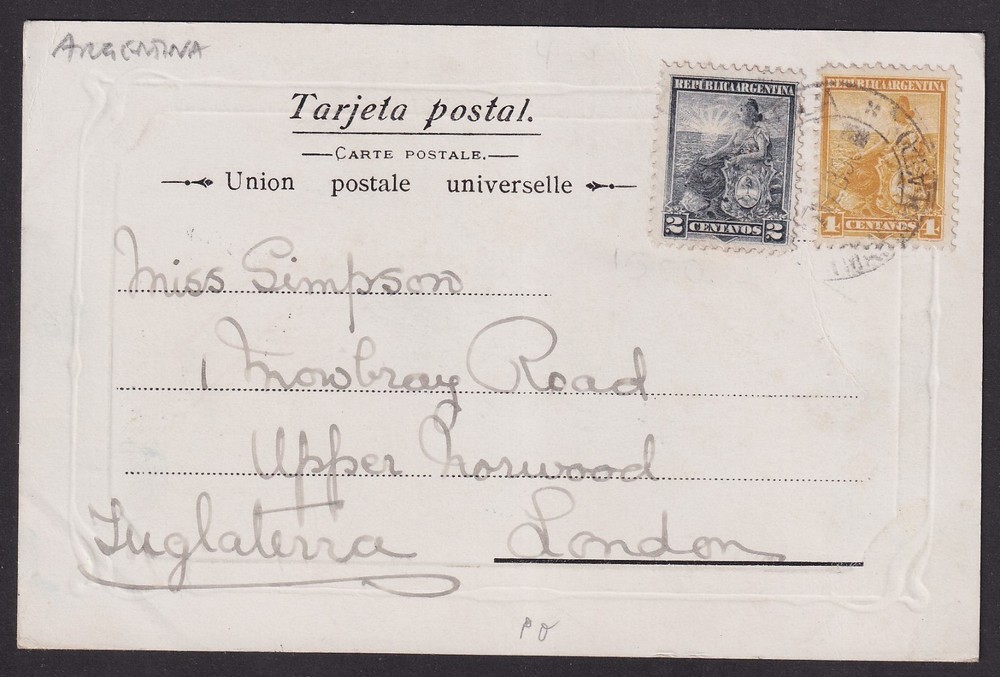 ARGENTINA
Tarjeta postal.
CARTE POSTALE.
Union postale universelle
REPÚBLICA ARGENTINA
2 CENTAVOS 2
REPÚBLICA ARGENTINA
4 CENTAVOS 4
Miss Simpson
1 Mowbray Road
Upper Norwood
Inglaterra London